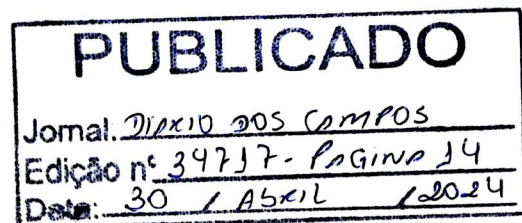 PUBLICADO
Jornal. DIARIO DOS CAMPOS
Edição nº 34717- PAGINA 14
Data: 30 / ABRIL / 2024